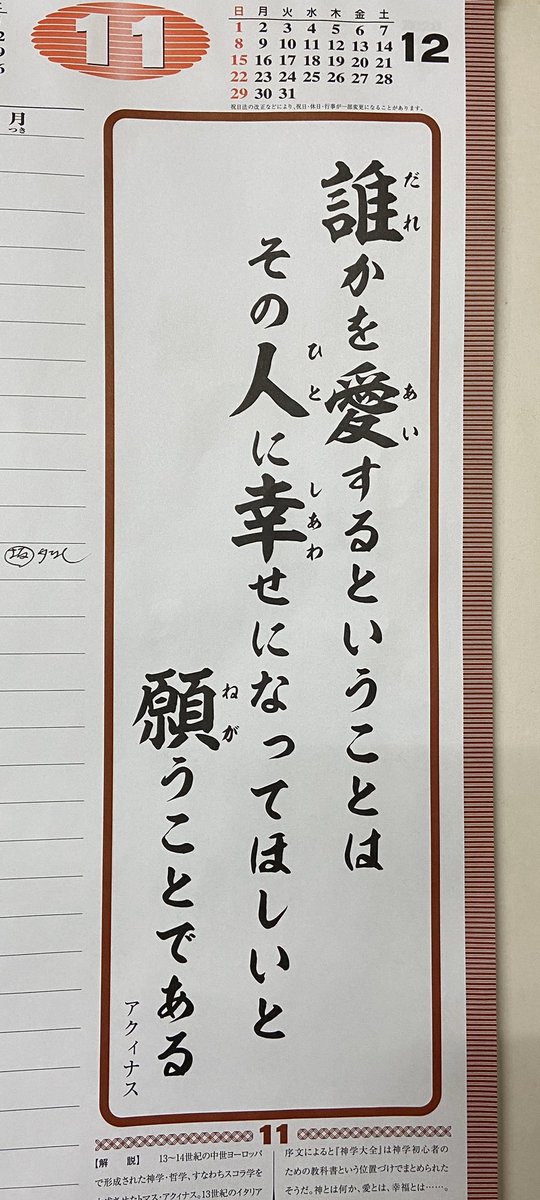 11
日 月 火 水 木 金 土
1 2 3 4 5 6 7
8 9 10 11 12 13 14
15 16 17 18 19 20 21
22 23 24 25 26 27 28
29 30 31
12
祝日法の改正などにより、祝日・休日・行事が一部変更になることがあります。
月
つき
誰かを愛するということは
だれ
あい
その人に幸せになってほしいと
ひと
しあわ
願うことである
ねが
アクィナス
11
【解 説】 13〜14世紀の中世ヨーロッパ
で形成された神学・哲学、すなわちスコラ学を
トマス・アクィナス。13世紀のイタリア
序文によると『神学大全』は神学初心者の
ための教科書という位置づけでまとめられた
そうだ。神とは何か、愛とは、幸福とは……。